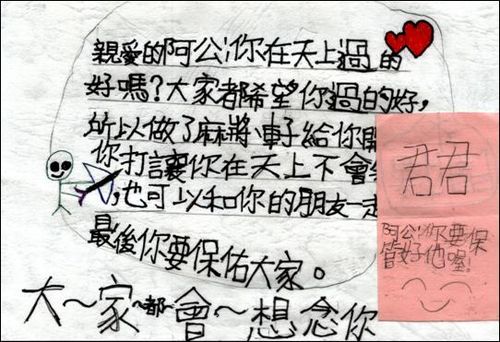 親愛的阿公:你在天上過的
好嗎?大家都希望你過的好,
所以做了麻將、車子給你開
你打讓你在天上不會
,也可以和你的朋友一起
最後你要保佑大家。
大～家～都～會～想念你
君君
阿公你要保
管好他喔